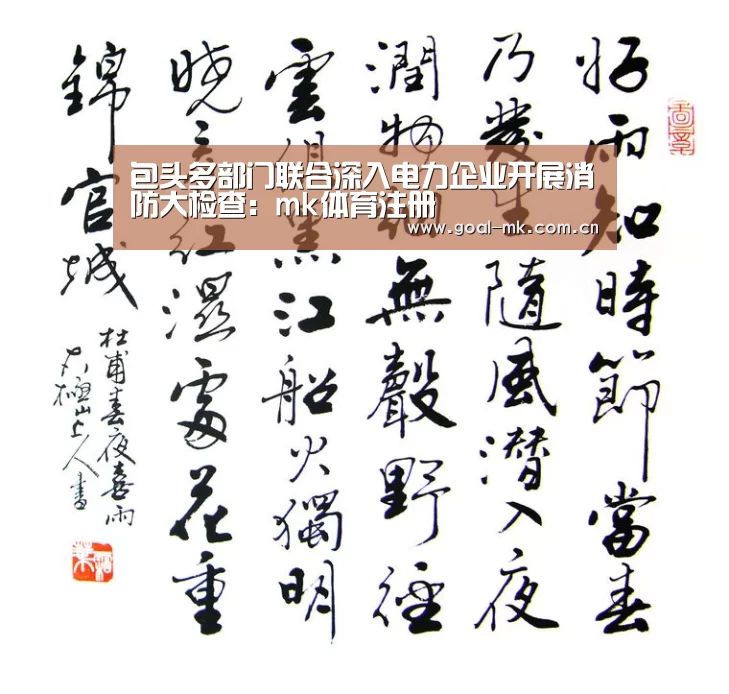 包头多部门联合深入电力企业开展消
防大检查：mk体育注册
www.goal-mk.com.cn
好雨知時節當春
乃發生隨風潜入夜
潤物細無聲野徑
雲俱黑江船火獨明
曉看紅濕處花重
錦官城
杜甫春夜喜雨
極山上人書